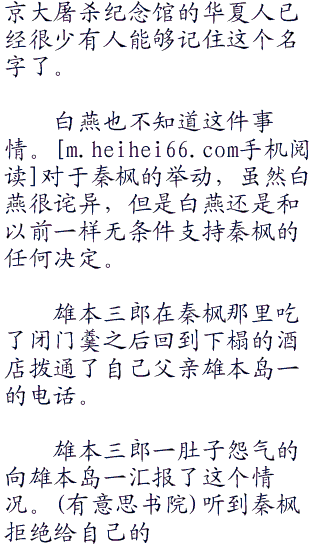 京大屠杀纪念馆的华夏人已
经很少有人能够记住这个名
字了。
白燕也不知道这件事
情。[m.heihei66.com手机阅
读]对于秦枫的举动，虽然白
燕很诧异，但是白燕还是和
以前一样无条件支持秦枫的
任何决定。
雄本三郎在秦枫那里吃
了闭门羹之后回到下榻的酒
店拨通了自己父亲雄本岛一
的电话。
雄本三郎一肚子怨气的
向雄本岛一汇报了这个情
况。(有意思书院)听到秦枫
拒绝给自己的